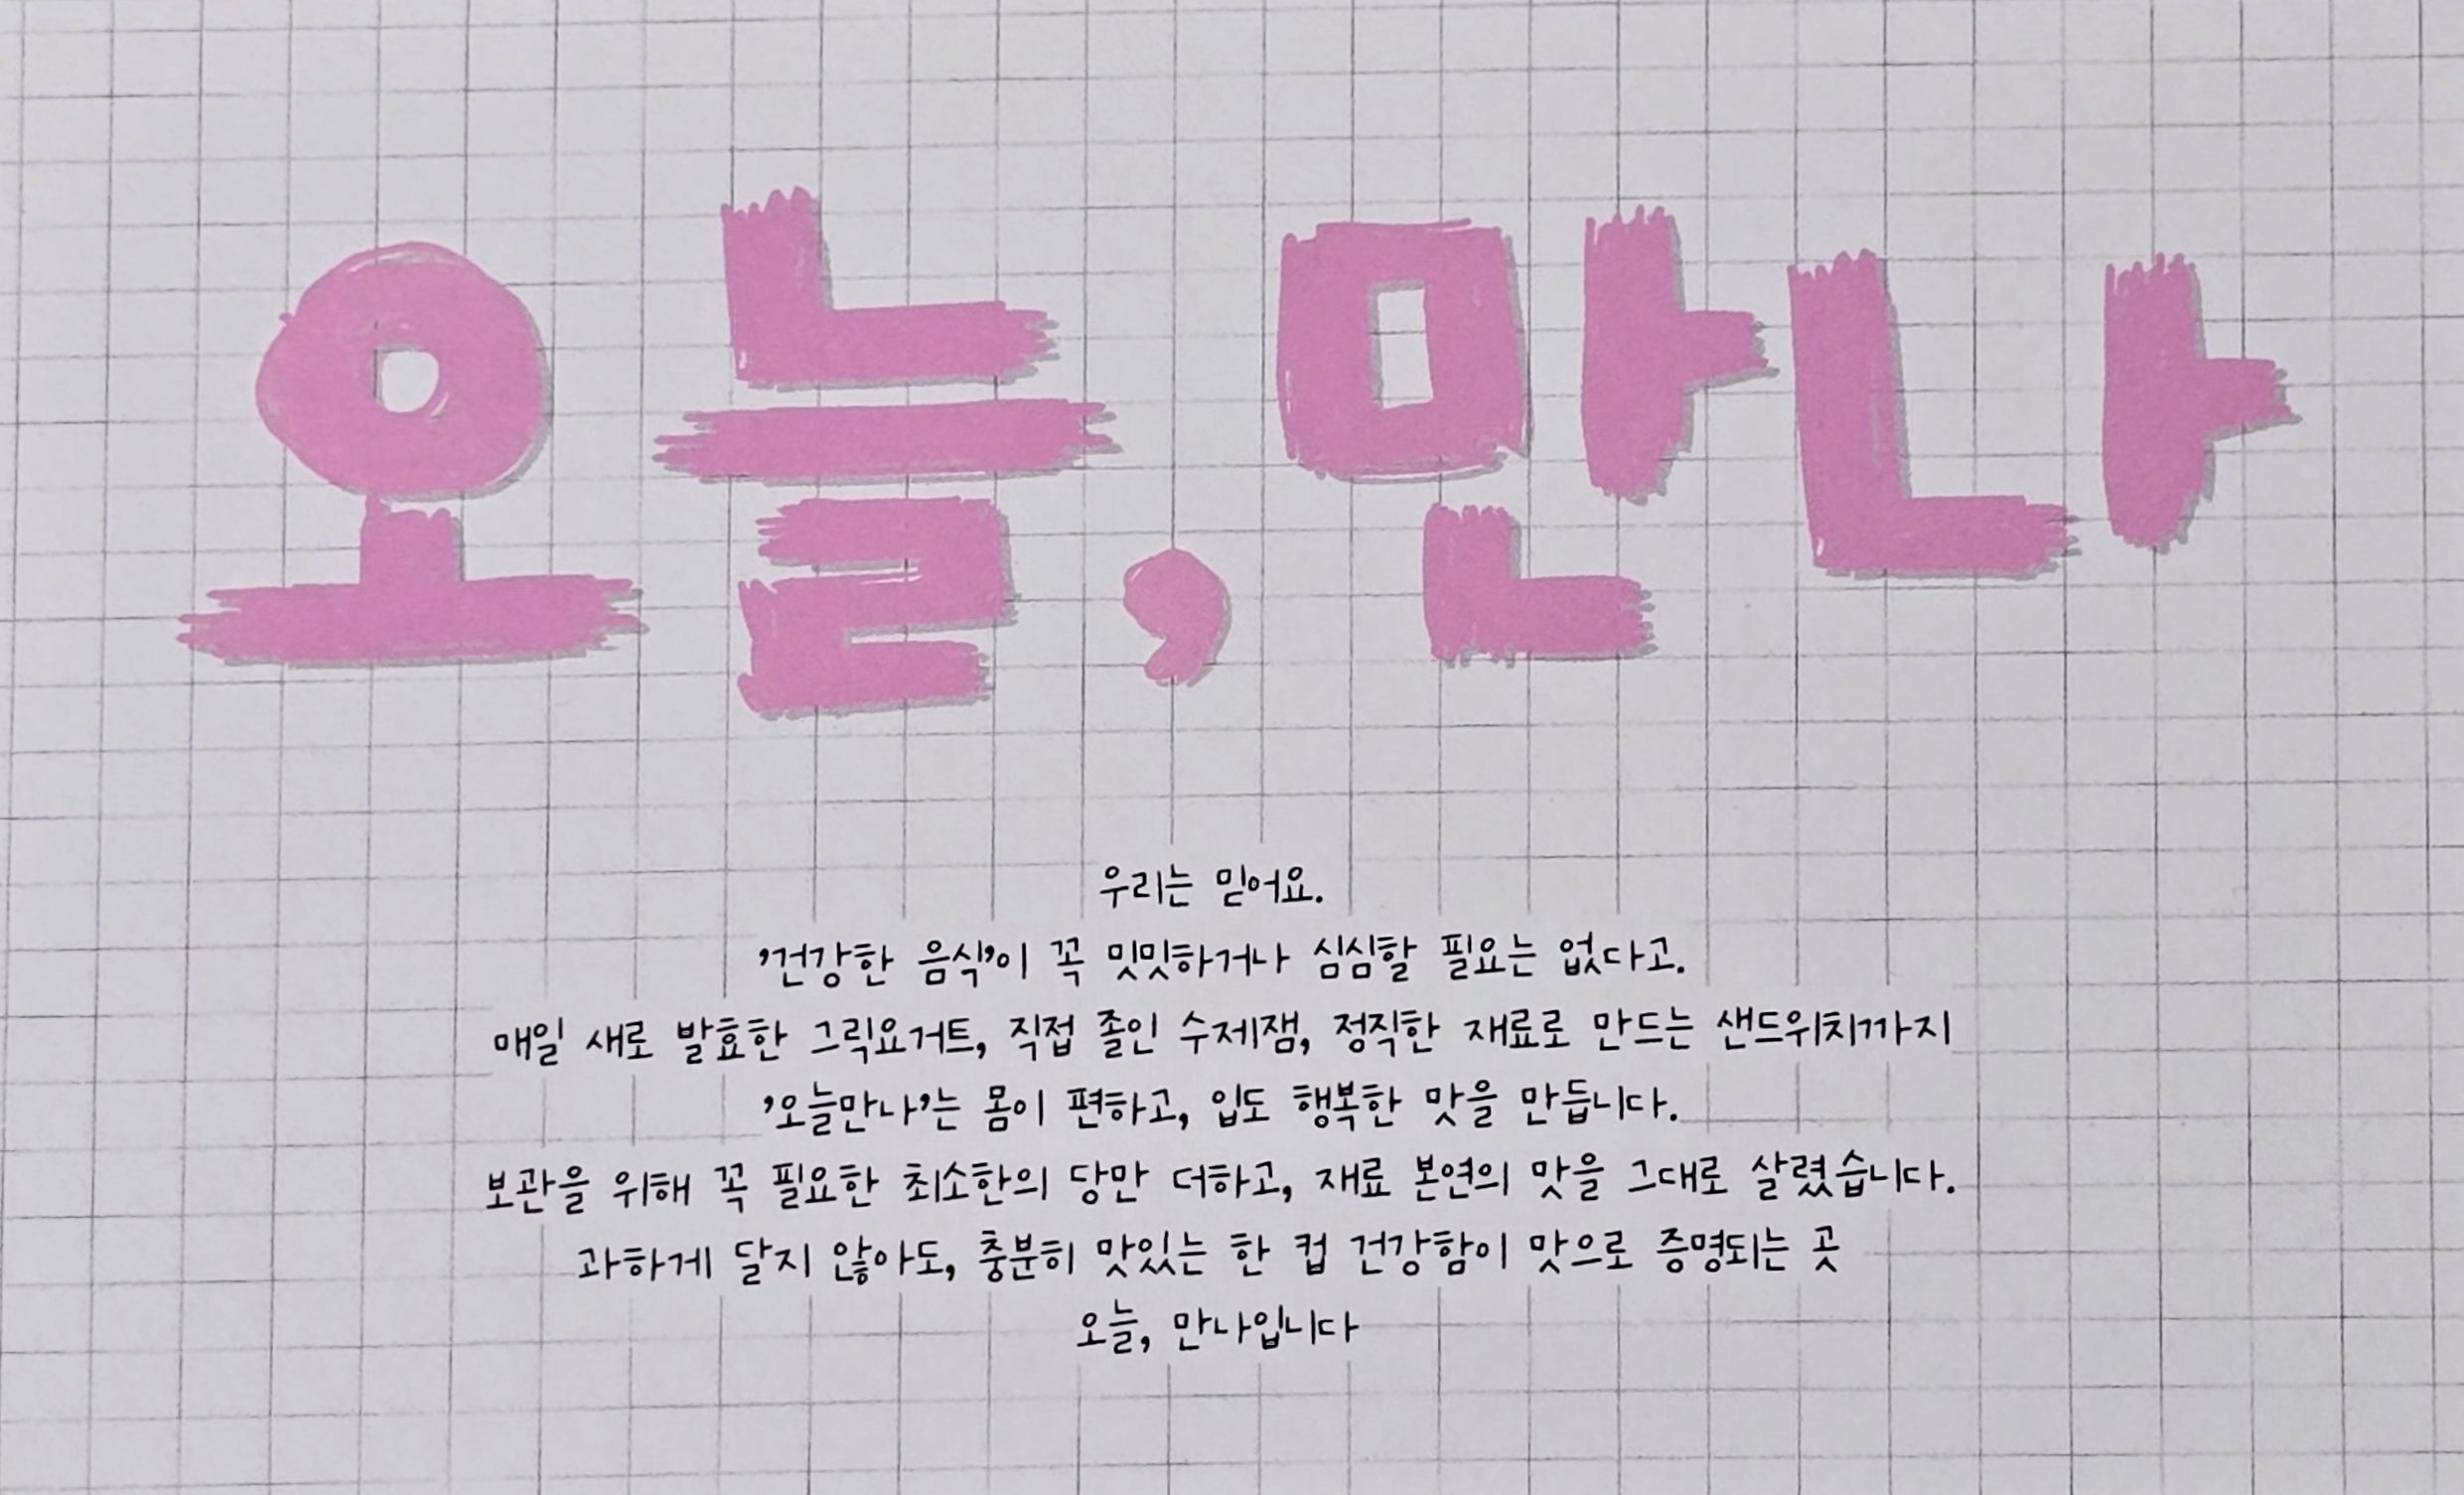 오늘, 만나
우리는 믿어요.
'건강한 음식'이 꼭 밋밋하거나 심심할 필요는 없다고.
매일 새로 발효한 그릭요거트, 직접 졸인 수제잼, 정직한 재료로 만드는 샌드위치까지
'오늘만나'는 몸이 편하고, 입도 행복한 맛을 만듭니다.
보관을 위해 꼭 필요한 최소한의 당만 더하고, 재료 본연의 맛을 그대로 살렸습니다.
과하게 달지 않아도, 충분히 맛있는 한 컵 건강함이 맛으로 증명되는 곳
오늘, 만나입니다